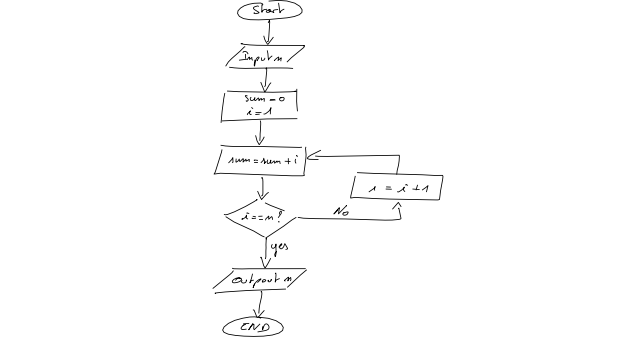 Start
Input n
sum = 0
i = 1
sum = sum + i
i = i + 1
i == n ?
No
yes
Outpout n
END